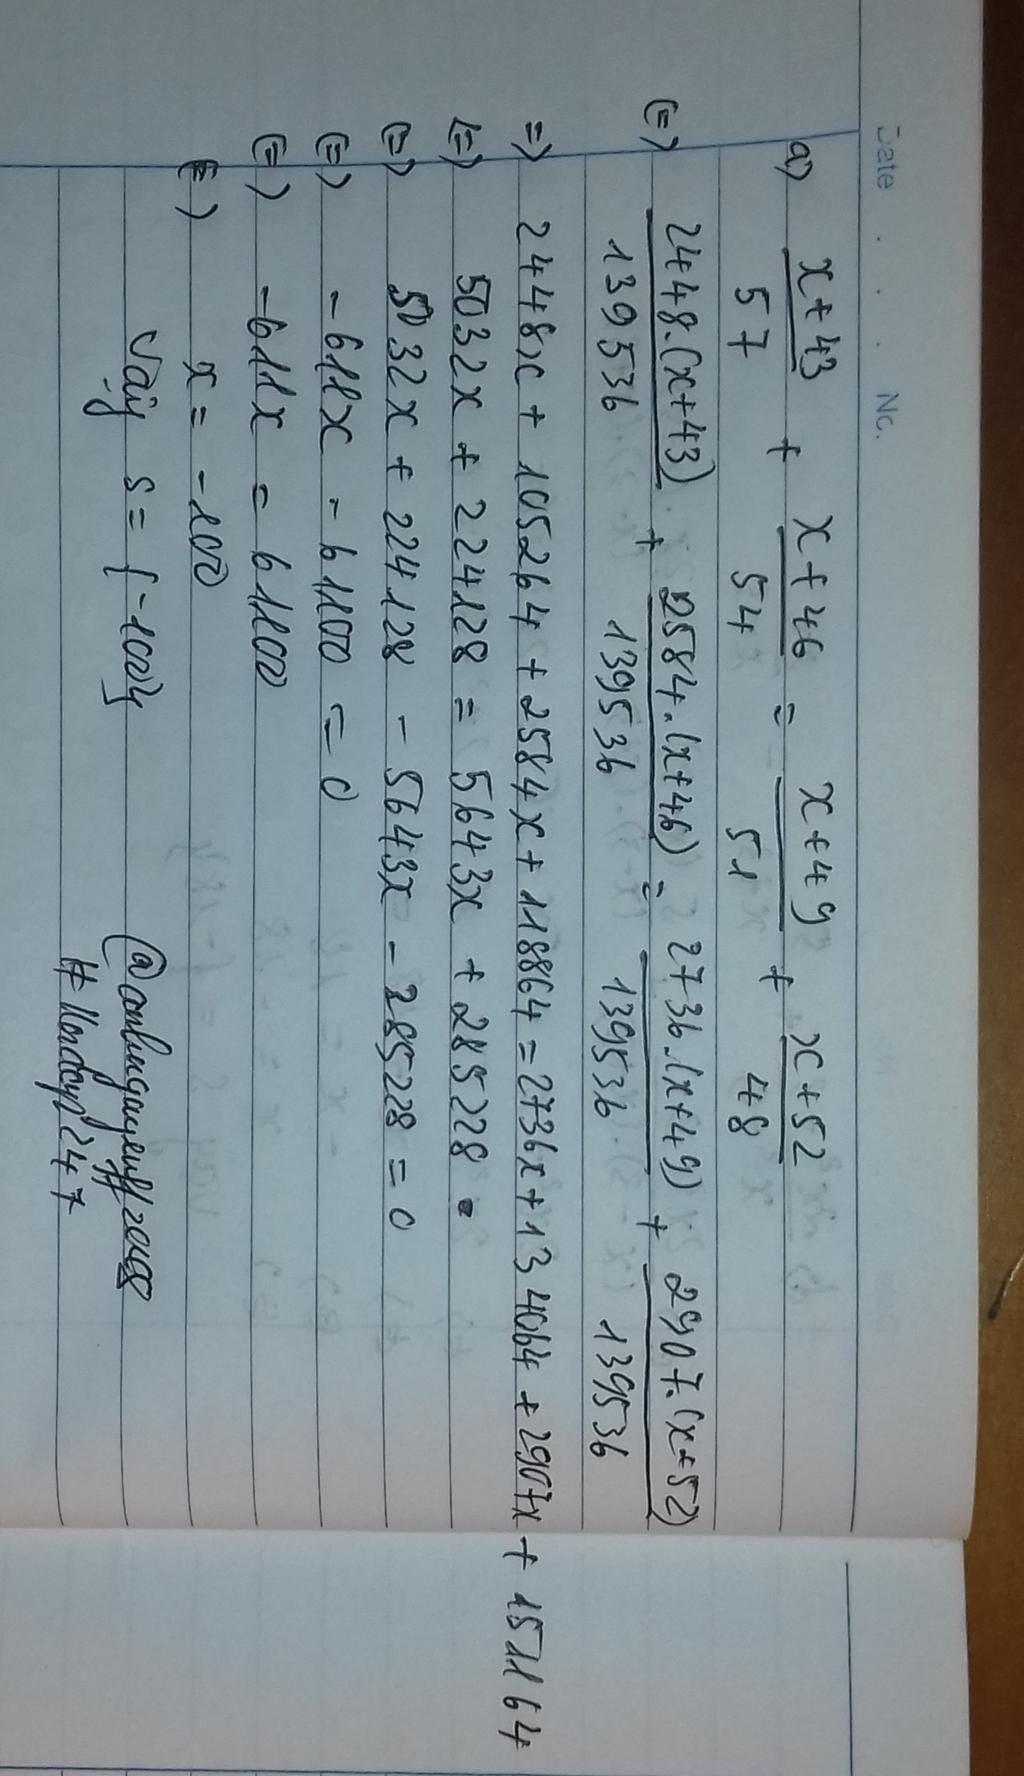 Date . . . No.
a) x+43/57 + x+46/54 = x+49/51 + x+52/48
(=) 2448.(x+43)/139536 + 2584.(x+46)/139536 = 2736.(x+49)/139536 + 2907.(x+52)/139536
=) 2448x + 105264 + 2584x + 118864 = 2736x + 134064 + 2907x + 151164
(=) 5032x + 224128 = 5643x + 285228
(=) 5032x + 224128 - 5643x - 285228 = 0
(=) -611x - 61100 = 0
(=) -611x = 61100
(=) x = -100
Vậy S = {-100}